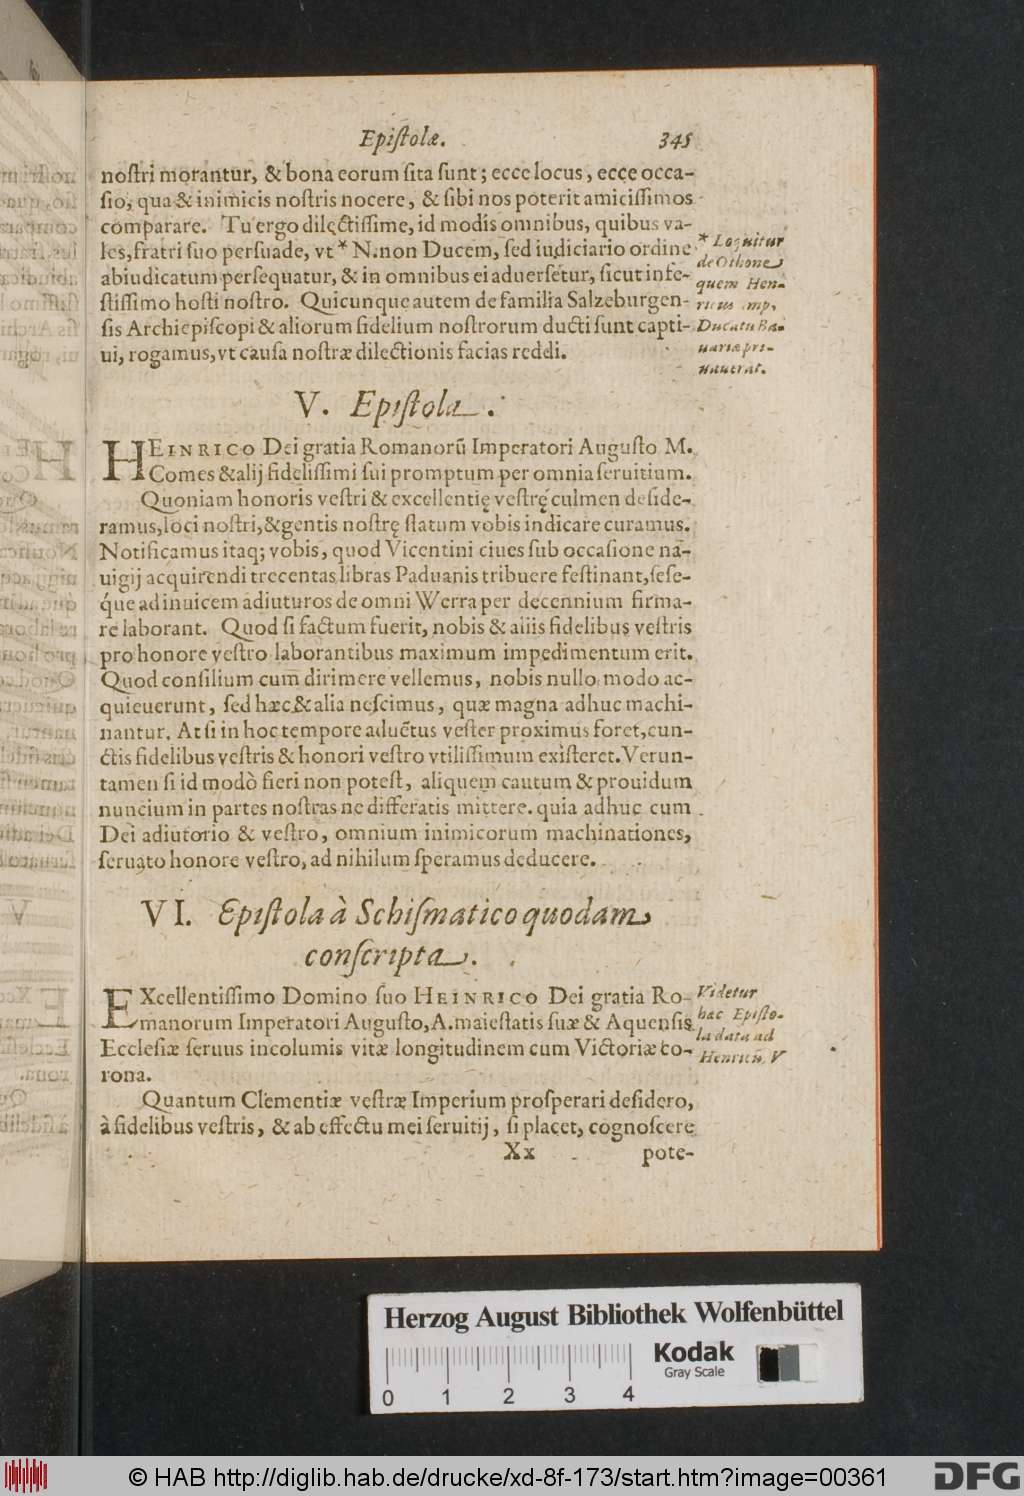 Epistolæ. 345
nostri morantur, & bona eorum sita sunt; ecce locus, ecce occa-
sio, qua & inimicis nostris nocere, & sibi nos poterit amicissimos
comparare. Tu ergo dilectissime, id modis omnibus, quibus va-
les, fratri suo persuade, vt * N. non Ducem, sed iudiciario ordine
abiudicatum persequatur, & in omnibus ei aduersetur, sicut infe-
stissimo hosti nostro. Quicunque autem de familia Salzeburgen-
sis Archiepiscopi & aliorum fidelium nostrorum ducti sunt capti-
ui, rogamus, vt causa nostræ dilectionis facias reddi.
* Loquitur
de Othone,
quem Hen-
ricus Imp.
Ducatu Ba-
uariæ pri-
uauerat.
V. Epistola.
HEINRICO Dei gratia Romanorū Imperatori Augusto M.
Comes & alij fidelissimi sui promptum per omnia seruitium.
Quoniam honoris vestri & excellentię vestrę culmen deside-
ramus, loci nostri, & gentis nostrę statum vobis indicare curamus.
Notificamus itaq; vobis, quod Vicentini ciues sub occasione na-
uigij acquirendi trecentas libras Paduanis tribuere festinant, sese-
q́ue adinuicem adiuturos de omni Werra per decennium firma-
re laborant. Quod si factum fuerit, nobis & aliis fidelibus vestris
pro honore vestro laborantibus maximum impedimentum erit.
Quod consilium cum dirimere vellemus, nobis nullo modo ac-
quieuerunt, sed hæc & alia nescimus, quæ magna adhuc machi-
nantur. At si in hoc tempore aductus vester proximus foret, cun-
ctis fidelibus vestris & honori vestro vtilissimum existeret. Verun-
tamen si id modò fieri non potest, aliquem cautum & prouidum
nuncium in partes nostras ne differatis mittere. quia adhuc cum
Dei adiutorio & vestro, omnium inimicorum machinationes,
seruato honore vestro, ad nihilum speramus deducere.
VI. Epistola à Schismatico quodam
conscripta.
EXcellentissimo Domino suo HEINRICO Dei gratia Ro-
manorum Imperatori Augusto, A. maiestatis suæ & Aquensis
Ecclesiæ seruus incolumis vitæ longitudinem cum Victoriæ co-
rona.
Videtur
hæc Episto-
la data ad
Henricū V
Quantum Clementiæ vestræ Imperium prosperari desidero,
à fidelibus vestris, & ab effectu mei seruitij, si placet, cognoscere
Xx pote-
Herzog August Bibliothek Wolfenbüttel
Kodak
Gray Scale
0 1 2 3 4
© HAB http://diglib.hab.de/drucke/xd-8f-173/start.htm?image=00361
DFG